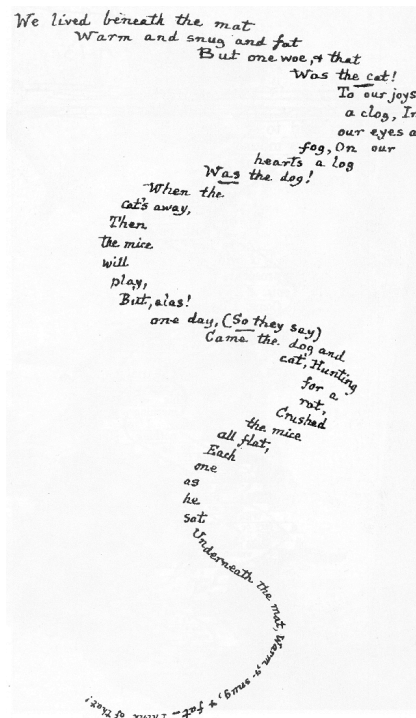 We lived beneath the mat
Warm and snug and fat
But one woe, & that
Was the cat!
To our joys
a clog, In
our eyes a
fog, On our
hearts a log
Was the dog!
When the
cat's away,
Then
the mice
will
play,
But, alas!
one day, (So they say)
Came the dog and
cat, Hunting
for a
rat,
Crushed
the mice
all flat,
Each
one
as
he
sat
Underneath the mat, Warm, & snug, & fat_ Think of that!